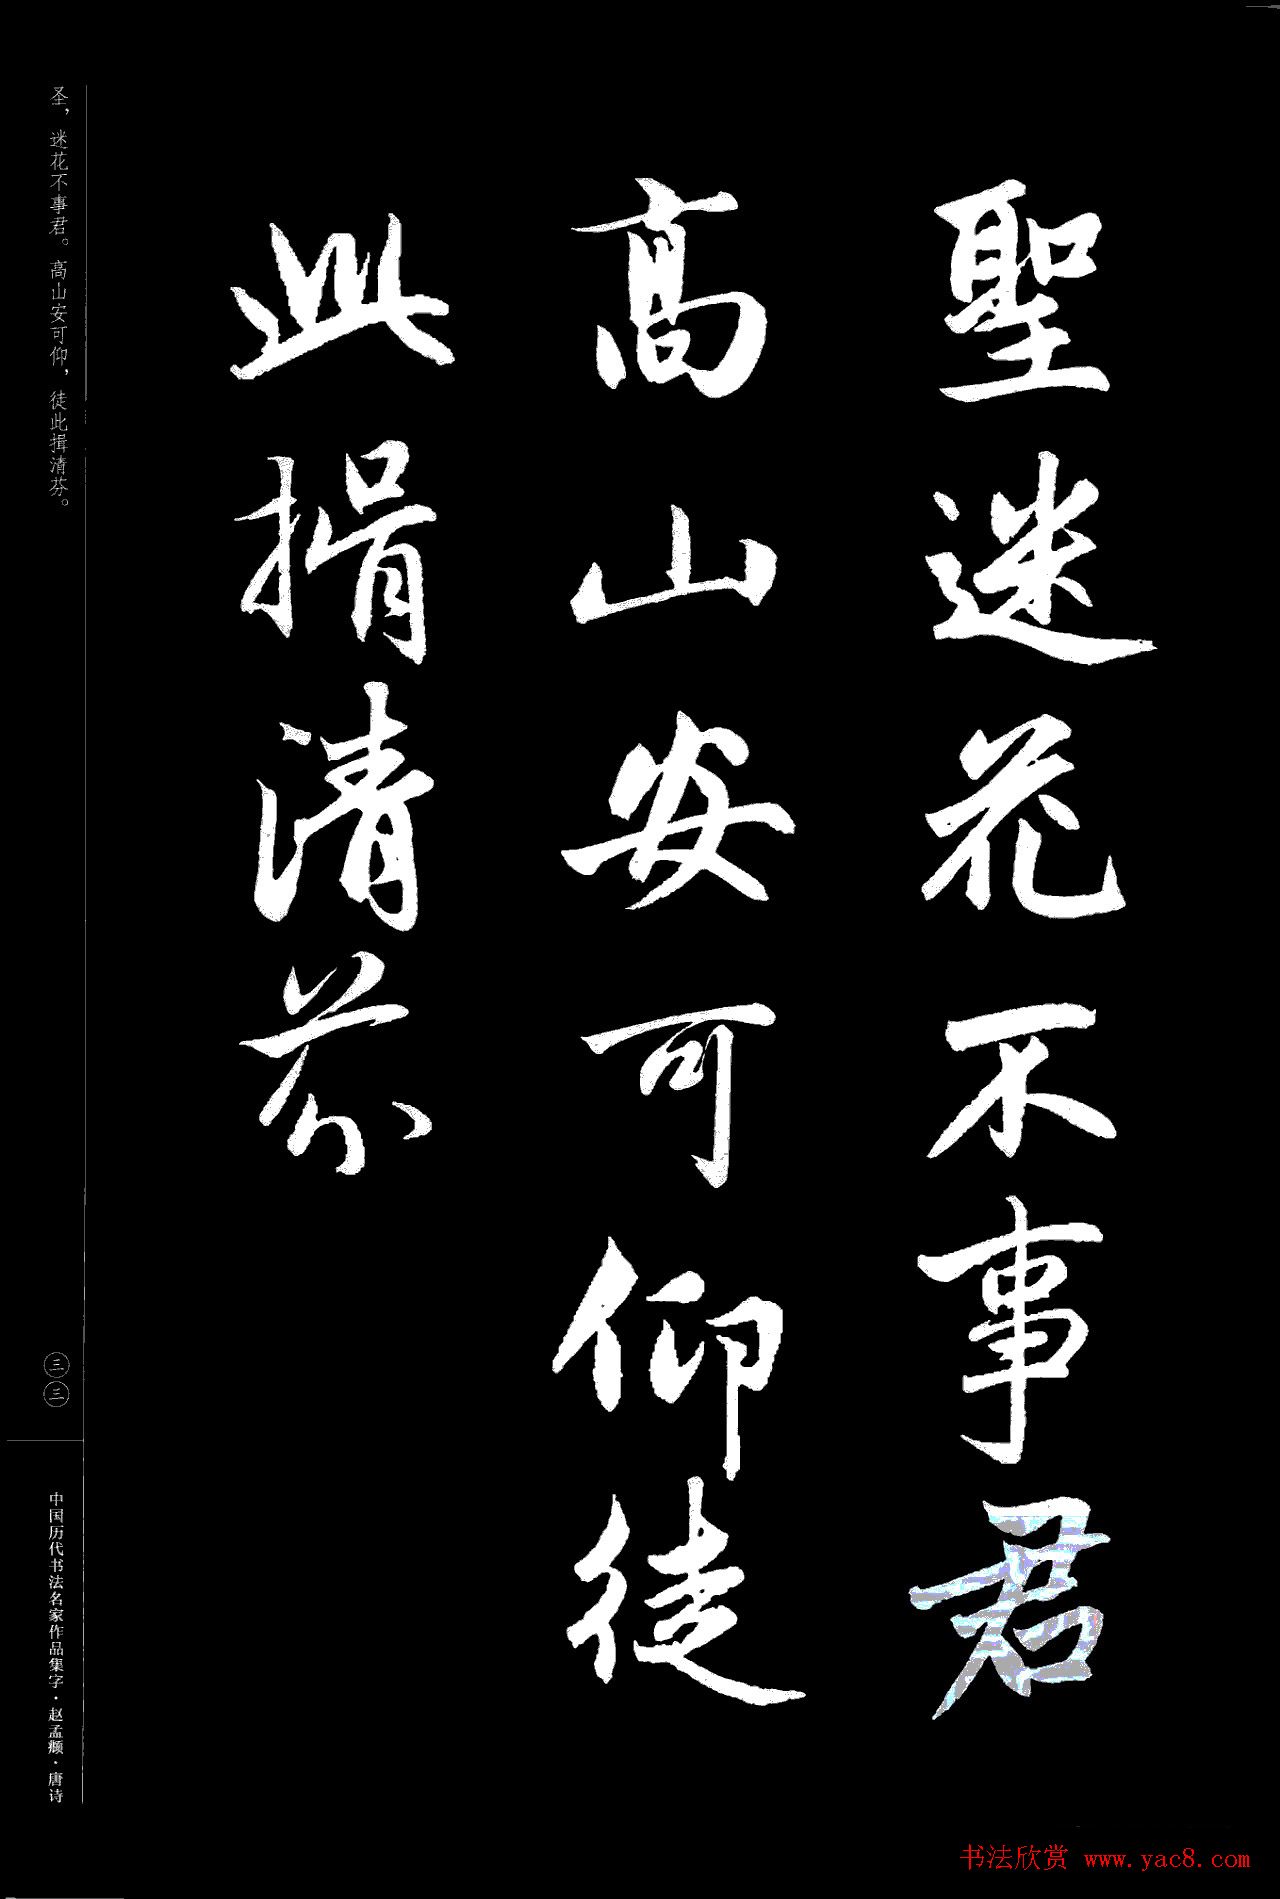 聖迷花不事君
高山安可仰徒
此揖清芬
圣，迷花不事君。高山安可仰，徒此揖清芬。
三三
中国历代书法名家作品集字·赵孟頫·唐诗
书法欣赏 www.yac8.com